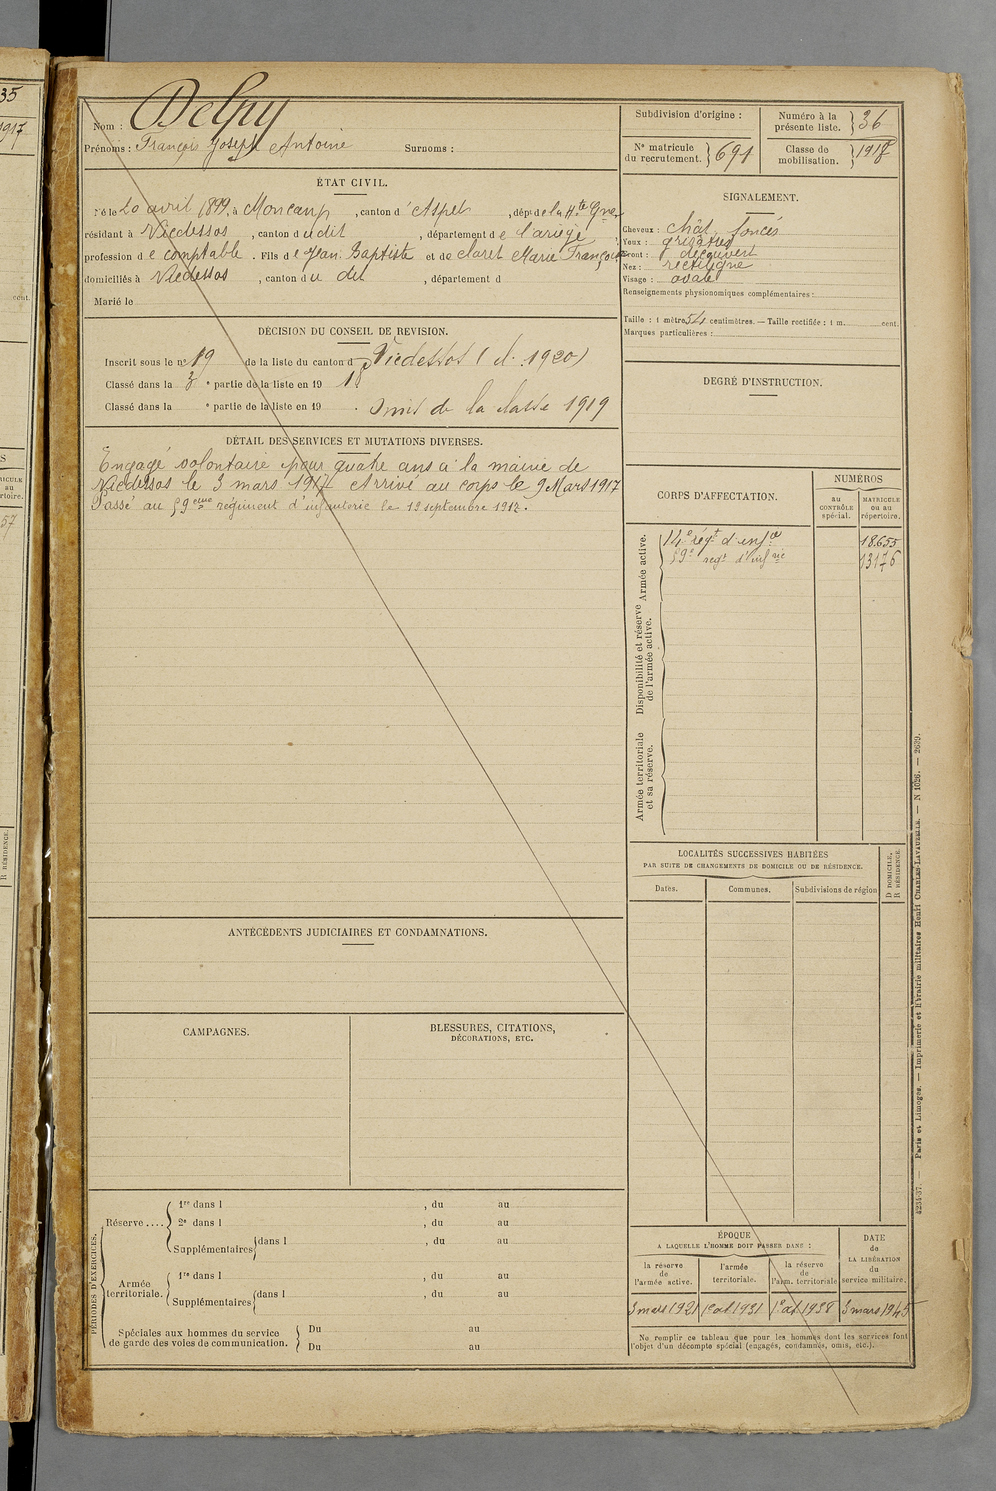 35
1917
cent.
57
R RÉSIDENCE.
Nom : Delpy
Prénoms : François Joseph Antoine Surnoms :
ÉTAT CIVIL.
Né le 20 avril 1899, à Moncaup, canton d'Aspet, dépt de la Hte Gne
résidant à Vicdessos, canton d udit, département de l'ariège,
profession de comptable. Fils de Jean Baptiste et de Claret Marie Françoise
domiciliés à Vicdessos, canton du dit, département d
Marié le
DÉCISION DU CONSEIL DE REVISION.
Inscrit sous le n° 19 de la liste du canton de Vicdessos (cl. 1920)
Classé dans la 3 e partie de la liste en 19 18
Classé dans la e partie de la liste en 19 . Omis de la classe 1919
DÉTAIL DES SERVICES ET MUTATIONS DIVERSES.
Engagé volontaire pour quatre ans à la mairie de
Vicdessos le 3 mars 1917 Arrivé au corps le 9 Mars 1917
Passé au 59eme régiment d'infanterie le 12 septembre 1917.
ANTÉCÉDENTS JUDICIAIRES ET CONDAMNATIONS.
CAMPAGNES.
BLESSURES, CITATIONS,
DÉCORATIONS, ETC.
PÉRIODES D'EXERCICES.
Réserve ....
1re dans l , du au
2e dans l , du au
Supplémentaires dans l , du au
Armée territoriale.
1re dans l , du au
Supplémentaires dans l , du au
Spéciales aux hommes du service
de garde des voies de communication.
Du au
Du au
Subdivision d'origine :
Numéro à la présente liste. 36
N° matricule du recrutement. 691
Classe de mobilisation. 1918
SIGNALEMENT.
Cheveux : chât. foncés
Yeux : grisâtres
Front : découvert
Nez : rectiligne
Visage : ovale
Renseignements physionomiques complémentaires :
Taille : 1 mètre 54 centimètres. — Taille rectifiée : 1 m. cent.
Marques particulières :
DEGRÉ D'INSTRUCTION.
CORPS D'AFFECTATION.
NUMÉROS
au CONTRÔLE spécial.
MATRICULE ou au répertoire.
Armée active.
14e régt d'infie 18.655
59e regt d'infrie 13176
Disponibilité et réserve de l'armée active.
Armée territoriale et sa réserve.
LOCALITÉS SUCCESSIVES HABITÉES
PAR SUITE DE CHANGEMENTS DE DOMICILE OU DE RÉSIDENCE.
Dates. Communes. Subdivisions de région
D DOMICILE.
R RÉSIDENCE.
ÉPOQUE
A LAQUELLE L'HOMME DOIT PASSER DANS :
la réserve de l'armée active.
l'armée territoriale.
la réserve de l'arm. territoriale
DATE de LA LIBÉRATION du service militaire.
3 mars 1921 1er oct. 1931 1er oct. 1938 3 mars 1945
Ne remplir ce tableau que pour les hommes dont les services font
l'objet d'un décompte spécial (engagés, condamnés, omis, etc.).
4234-37. — Paris et Limoges. — Imprimerie et librairie militaires Henri CHARLES-LAVAUZELLE. — N 1026. — 2639.